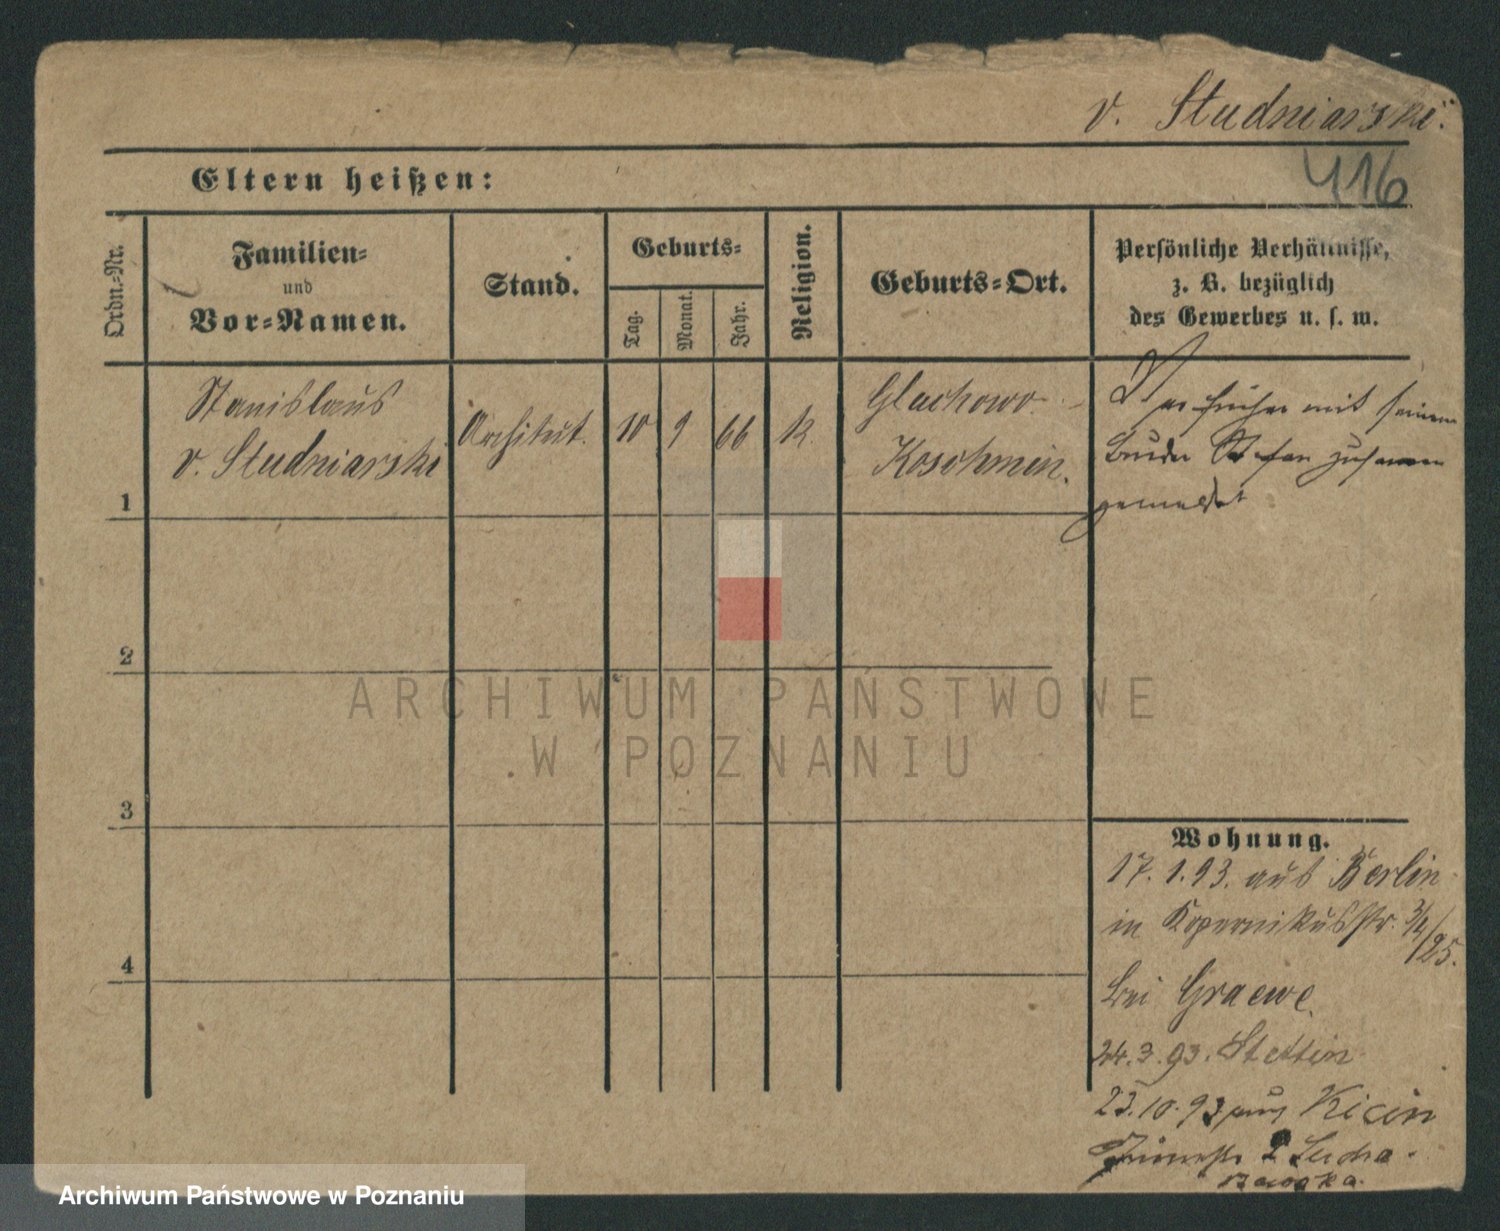 v. Studniarski.
416
Eltern heißen:
Ordn.-Nr.
Familien-
und
Vor-Namen.
Stand.
Geburts-
Tag.
Monat.
Jahr.
Religion.
Geburts-Ort.
Persönliche Verhältnisse,
z. B. bezüglich
des Gewerbes u. s. w.
1
Stanislaus
v. Studniarski
Architekt.
10
9
66
k
Gluchowo
Koschmin.
War früher mit seinem
Bruder Stefan zusammen
gemeldet
2
3
4
Wohnung.
17.1.93. aus Berlin
in Kopernikusstr. 3/4/25.
bei Graewe.
24.3.93. Stettin
23.10.93 aus Kicin
2 Sucha
ARCHIWUM PAŃSTWOWE
W POZNANIU
Archiwum Państwowe w Poznaniu